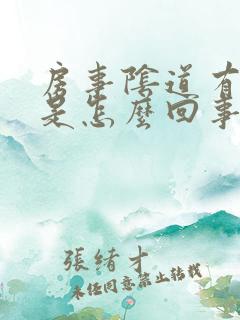 房事陰道有
是怎麼回事
張緒才
未經同意禁止轉載